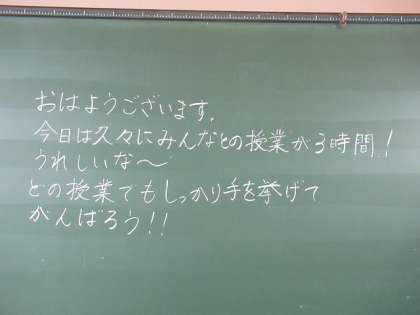 おはようございます。
今日は久々にみんなとの授業が3時間！
うれしいな〜
どの授業でもしっかり手を挙げて
がんばろう！！